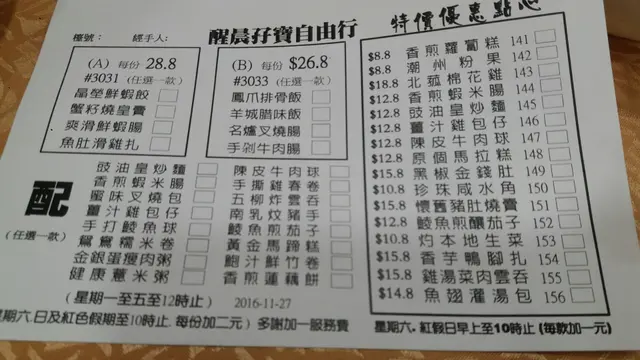 檯號： 經手人：
醒晨孖寶自由行
(A) 每份 28.8
#3031 (任選一款)
晶瑩鮮蝦餃
蟹籽燒皇賣
爽滑鮮蝦腸
魚肚滑雞扎
(B) 每份 $26.8
#3033 (任選一款)
鳳爪排骨飯
羊城腊味飯
名爐叉燒腸
手剁牛肉腸
配
(任選一款)
豉油皇炒麵
香煎蝦米腸
蜜味叉燒包
薑汁雞包仔
手打鯪魚球
鴛鴦糯米卷
金銀蛋瘦肉粥
健康薏米粥
陳皮牛肉球
手撕雞春卷
五柳炸雲吞
南乳炆豬手
鯪魚煎茄子
黃金馬蹄糕
鮑汁鮮竹卷
香煎蓮藕餅
(星期一至五至12時止) 2016-11-27
星期六.日及紅色假期至10時止. 每份加二元) 多謝加一服務費
特價優惠點心
$8.8 香煎蘿蔔糕 141
$8.8 潮州粉果 142
$18.8 北菰棉花雞 143
$12.8 香煎蝦米腸 144
$12.8 豉油皇炒麵 145
$12.8 薑汁雞包仔 146
$12.8 陳皮牛肉球 147
$12.8 原個馬拉糕 148
$15.8 黑椒金錢肚 149
$10.8 珍珠咸水角 150
$15.8 懷舊豬肚燒賣 151
$12.8 鯪魚煎釀茄子 152
$10.8 灼本地生菜 153
$15.8 香芋鴨腳扎 154
$15.8 雞湯菜肉雲吞 155
$14.8 魚翅灌湯包 156
星期六. 紅假日早上至10時止 (每款加一元)